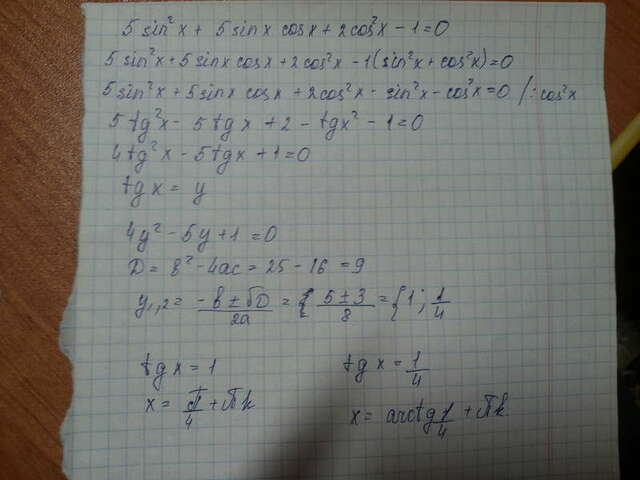 5 sin²x + 5 sinx cosx + 2cos²x - 1 = 0
5 sin²x + 5 sinx cosx + 2cos²x - 1(sin²x + cos²x) = 0
5 sin²x + 5 sinx cosx + 2cos²x - sin²x - cos²x = 0 /: cos²x
5 tg²x - 5 tgx + 2 - tgx² - 1 = 0
4 tg²x - 5 tgx + 1 = 0
tg x = y
4y² - 5y + 1 = 0
D = в² - 4ac = 25 - 16 = 9
y₁,₂ = (-в ± √D)/2a = { (5 ± 3)/8 = { 1 ; 1/4
tg x = 1 tg x = 1/4
x = π/4 + πk x = arctg 1/4 + πk